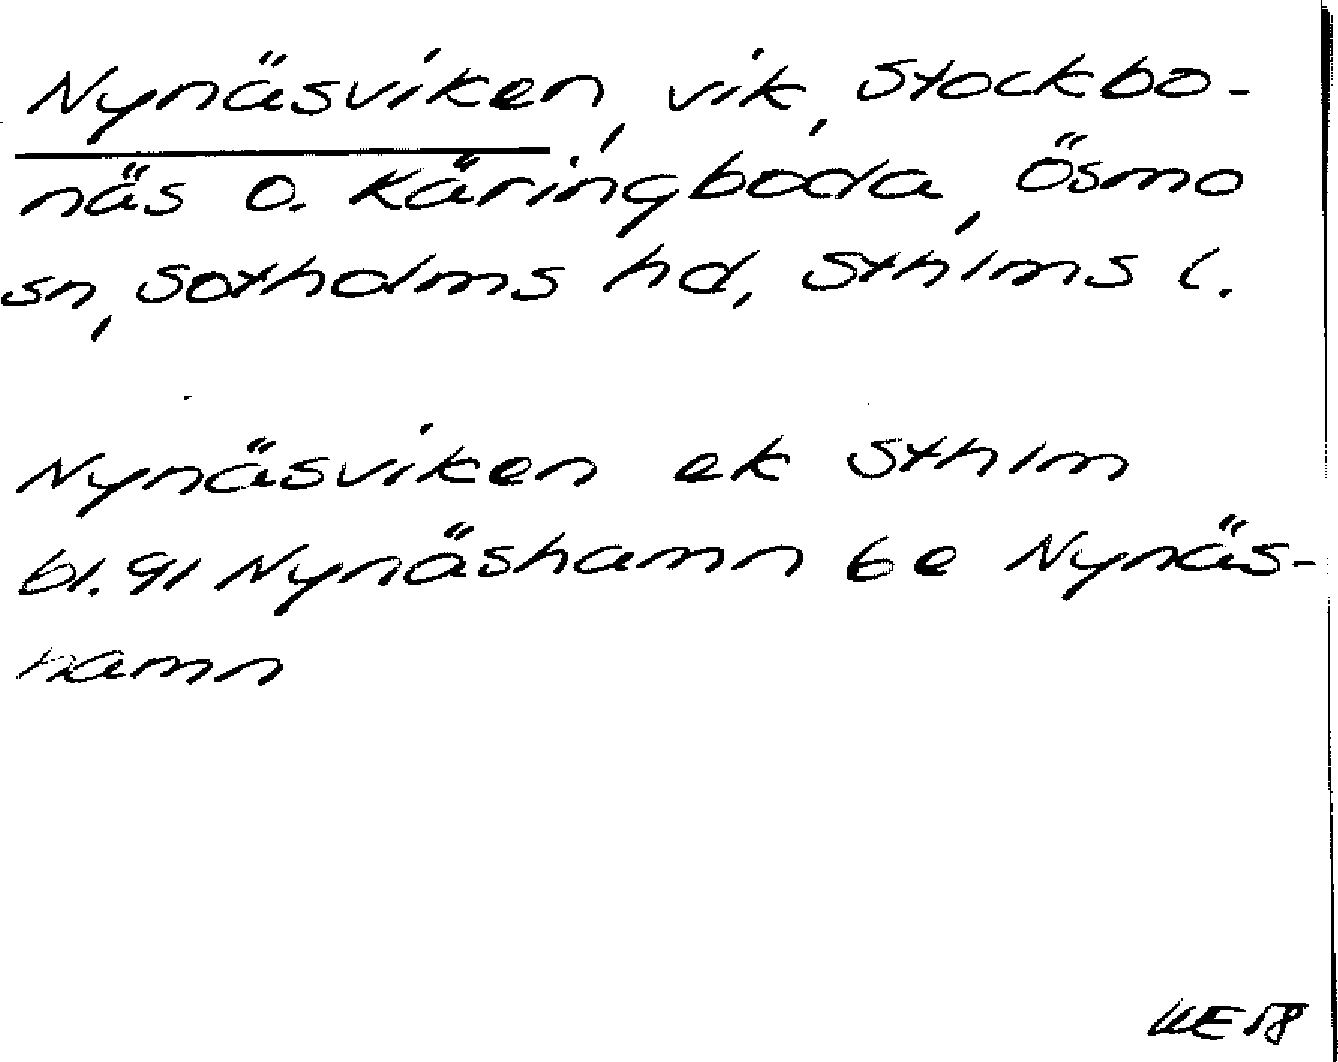 Nynäsviken, vik, Stockbo-
näs o. Käringboda, Ösmo
sn, Sotholms hd, Sthlms l.
Nynäsviken ek Sthlm
bl. 91 Nynäshamn 6e Nynäs-
hamn
WE 58